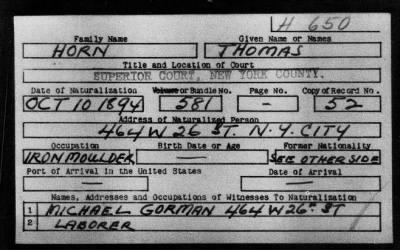 H 650
Family Name Given Name or Names
HORN THOMAS
Title and Location of Court
SUPERIOR COURT, NEW YORK COUNTY.
Date of Naturalization Volume or Bundle No. Page No. Copy of Record No.
OCT 10 1894 581 — 52
Address of Naturalized Person
464 W 26 ST. N.Y. CITY
Occupation Birth Date or Age Former Nationality
IRON MOULDER — SEE OTHER SIDE
Port of Arrival in the United States Date of Arrival
— —
Names, Addresses and Occupations of Witnesses To Naturalization
1 MICHAEL GORMAN 464 W 26 ST
2 LABORER